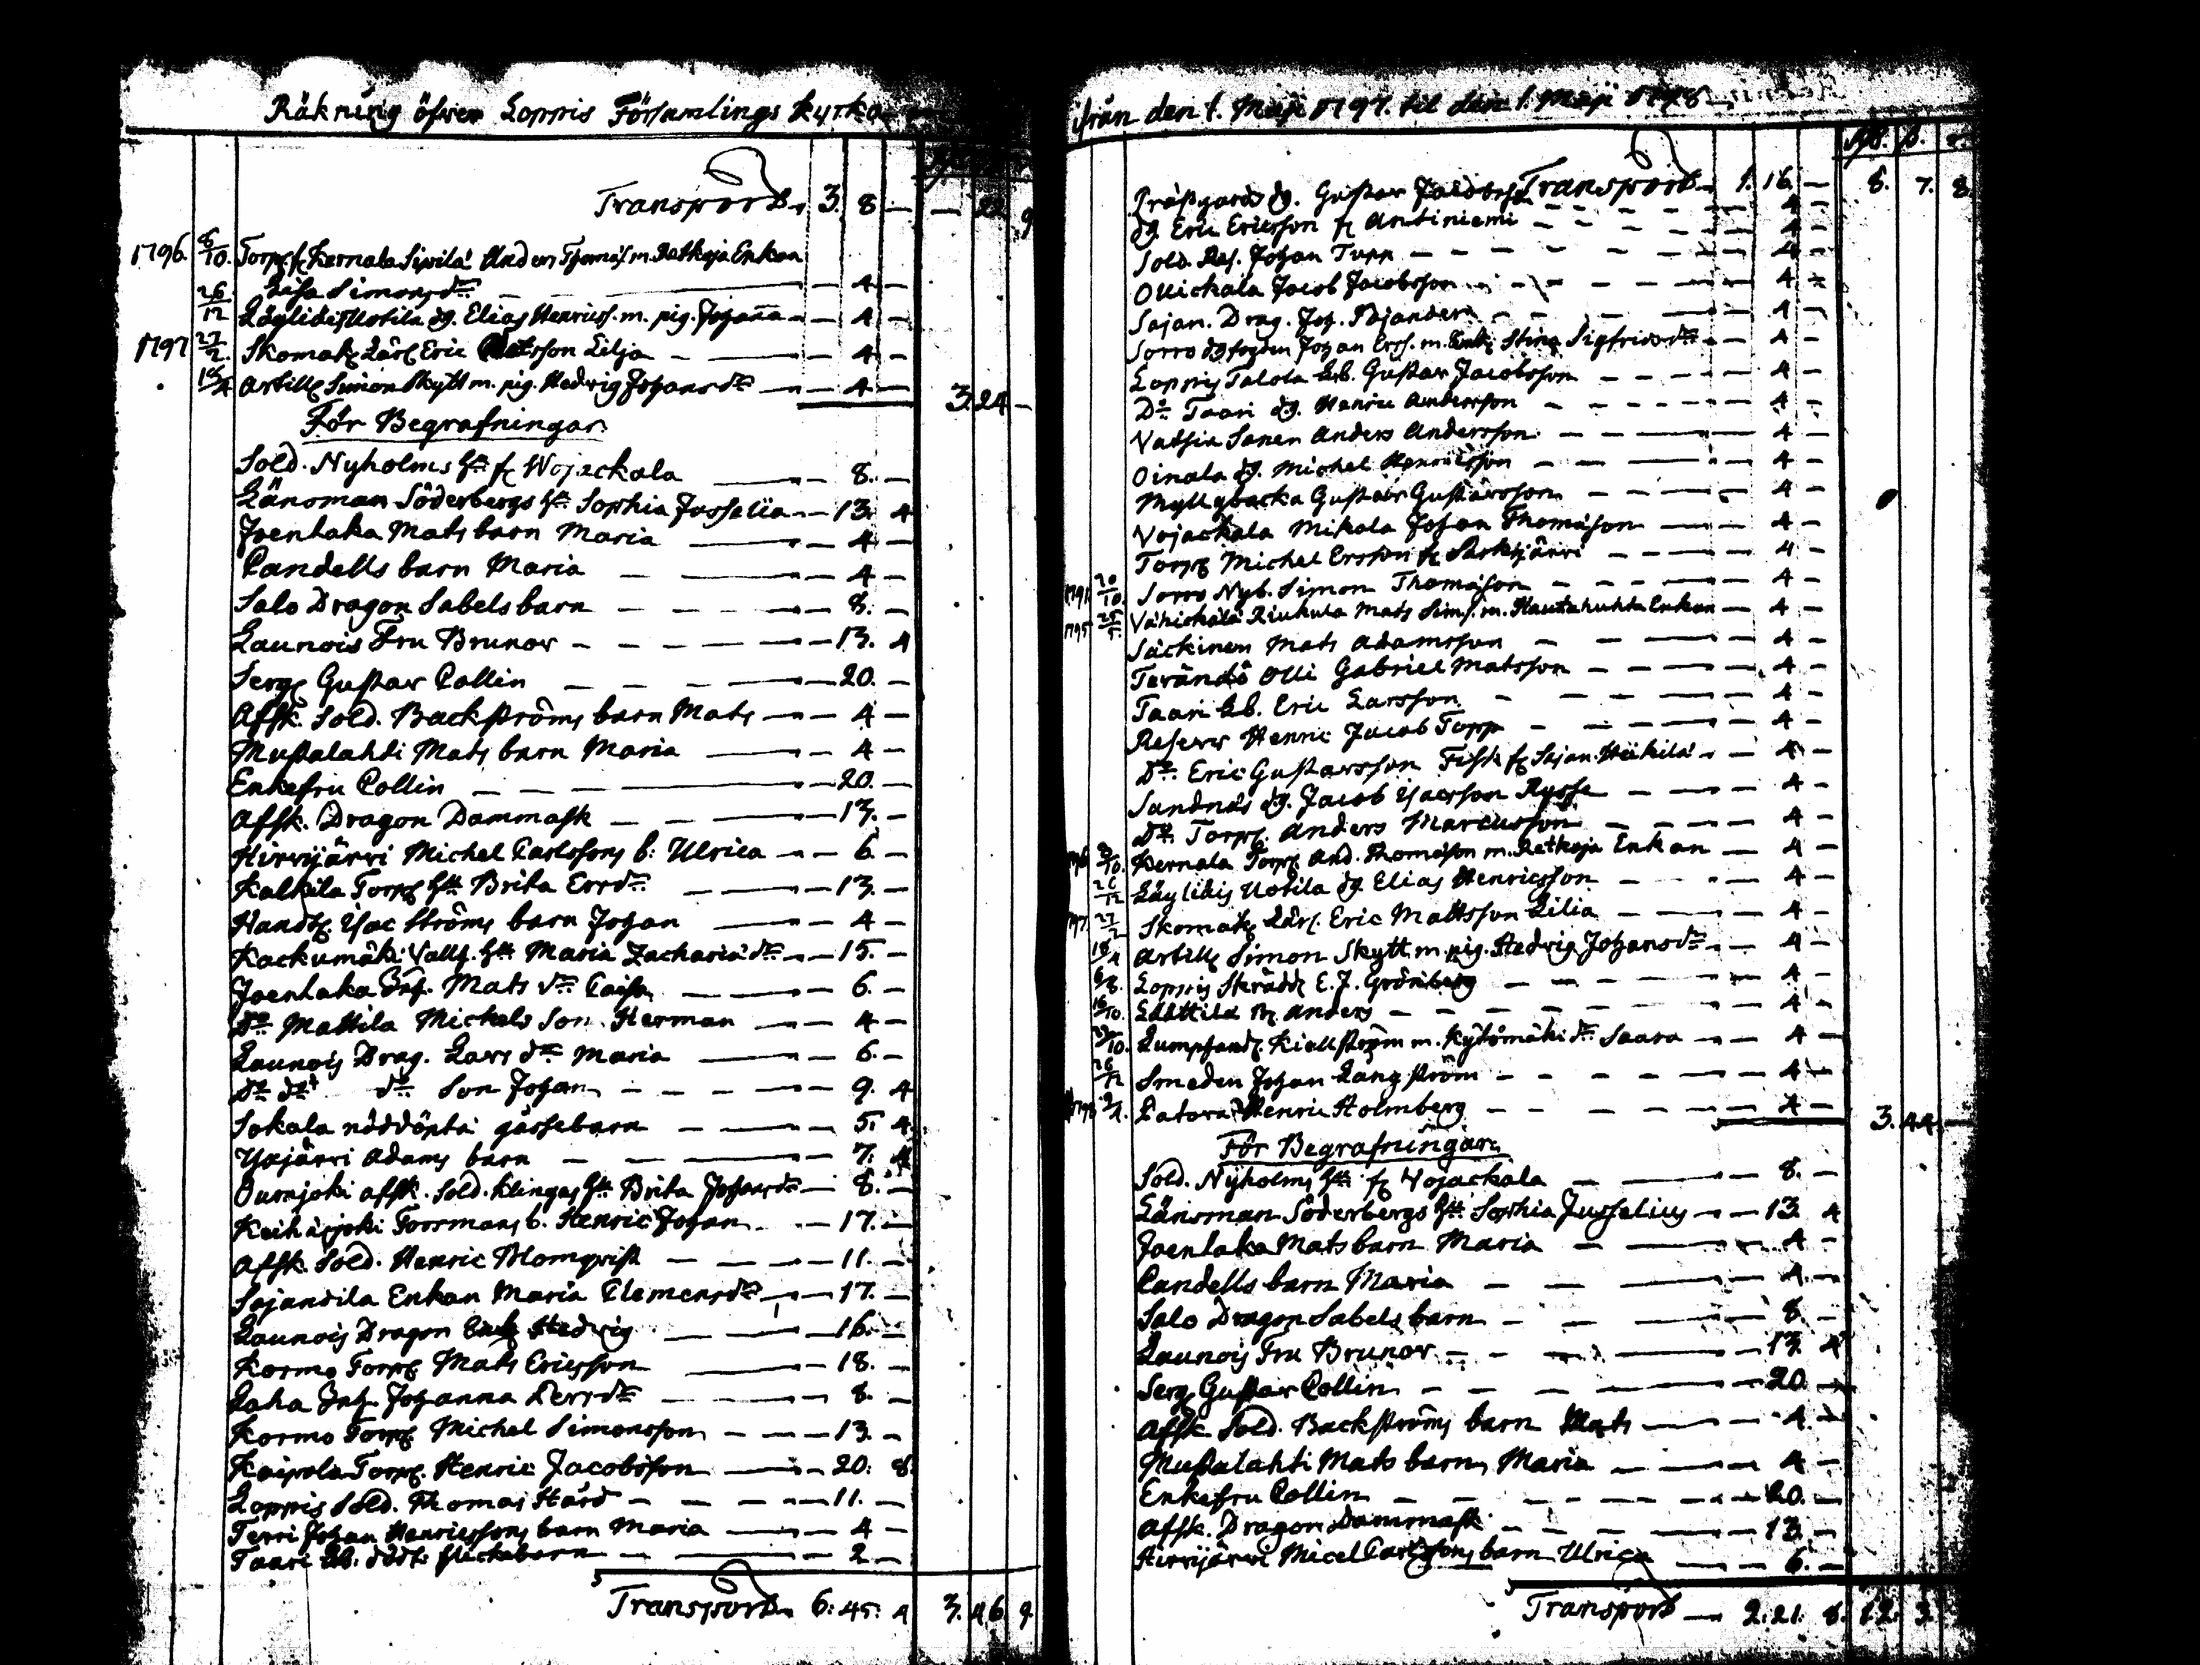 Räkning öfwer Loppis Församlings Kyrka
Transport 3. 8 — — 22. 9
1796. 8/10. Torp. fr. Kernala Sipilä Anders Thomass. m. Ratkoja Enkan
Lisa Simonsdr — 4 —
26/12 Läyliäis Uotila dg. Elias Henricss. m. pig. Johanna — 4 —
1797 27/2. Skomak. Lärl. Eric Matsson Lilja — 4 —
18/4 Artill. Simon Skytt m. pig. Hedwig Johansdr — 4 — 3. 24 —
För Begrafningar
Sold. Nyholms hu. fr. Wojackala — 8. —
Länsman Söderbergs hu. Sophia Jusselia — 13. 4
Joenlaka Mats barn Maria — 4 —
Candells barn Maria — 4 —
Salo Dragon Sabels barn — 8. —
Launois Fru Brunow — 13. 4
Serg. Gustav Collin — 20. —
Afsk. Sold. Backströms barn Mats — 4 —
Mustalahti Mats barn Maria — 4 —
Enkefru Collin — 20. —
Afsk. Dragon Dammask — 13. —
Hirvijärvi Michel Carlssons b. Ulrica — 6. —
Kalkila Torp. hu. Brita Ersdr — 13. —
Handl. Isac Ströms barn Johan — 4 —
Kackumäki Vallf. hu. Maria Zachariædr — 15. —
Joenlaka Inh. Mats dr Caisa — 6. —
Do Mattila Michels Son Herman — 4 —
Launois Drag. Lars dr Maria — 6. —
Do do do Son Johan — 9. 4
Sokala nöddöpta gåssebarn — 5. 4
Yxjärvi Adams barn — 7. 4
Ourajoki afsk. Sold. Klingas hu. Brita Johansdr — 8. —
Keihäsjoki Forsmans b. Henric Johan — 17. —
Afsk. Sold. Henric Blomqvist — 11. —
Sajaniila Enkan Maria Clemensdr — 17. —
Launois Dragon Enk. Hedwig — 16. —
Kormo Torp. Mats Ericsson — 18. —
Laha Inh. Johanna Persdr — 8. —
Kormo Torp. Michel Simonsson — 13. —
Kaipola Torp. Henric Jacobsson — 20. 8.
Loppis Sold. Thomas Hård — 11. —
Terri Johan Henricssons barn Maria — 4 —
Taari Lb. dödf. flickebarn — 2 —
Transport 6. 45. 4 3. 46. 9.
ifrån den 1. Maji 1797. til den 1. Maji 1798
Transport 1. 16. — 8. 7. 8.
Prästgårds dg. Gustav Jacobsson — 4 —
dg. Eric Ericsson fr. Antiniemi — 4 —
Sold. Res. Johan Tupp — 4 —
Ollickala Jacob Jacobsson — 4 —
Sajan. Drag. Joh. Pijander — 4 —
Sorro dg. fogden Johan Erss. m. Enk. Stina Sigfridsdr — 4 —
Loppis Talola Lb. Gustav Jacobsson — 4 —
Do Taari dg. Henric Andersson — 4 —
Vatsia Sanen Anders Andersson — 4 —
Oinala dg. Michel Henricsson — 4 —
Myllybacka Gustav Gustavsson — 4 —
Vojackala Mikola Johan Thomasson — 4 —
Torp. Michel Ersson fr. Sarkijärvi — 4 —
20/10. Sorro Nyb. Simon Thomasson — 4 —
1795 25/5. Vähickälä Riukula Mats Sims. m. Hautahuhta Enkan — 4 —
Säckinen Mats Adamsson — 4 —
Terändö Olli Gabriel Matsson — 4 —
Taari Lb. Eric Larsson — 4 —
Reserv Henric Jacob Topp — 4 —
Do Eric Gustavsson Fisk fr. Sajan. Heikilä — 4 —
Sandnäs dg. Jacob Isacsson Rysse — 4 —
Do Torp. Anders Marcusson — 4 —
8/10. Kernala Torp. And. Thomasson m. Ratkoja Enkan — 4 —
26/12 Läyliäis Uotila dg. Elias Henricsson — 4 —
27/2 Skomak. Lärl. Eric Mattsson Lilia — 4 —
18/4 Artill. Simon Skytt m. pig. Hedwig Johansdr — 4 —
6/8. Loppis Skrädd. E. J. Grönberg — 4 —
16/10. Anders — 4 —
29/10. Kiellström m. Kytömäki dr Saara — 4 —
26/12 Smeden Johan Långström — 4 —
Henric Holmberg — 4 — 3. 44. —
För Begrafningar
Sold. Nyholms hu. fr. Vojackala — 8. —
Länsman Söderbergs hu. Sophia Jusselius — 13. 4
Joenlaka Mats barn Maria — 4 —
Candells barn Maria — 4 —
Salo Dragon Sabels barn — 8 —
Launois Fru Brunow — 13. 4
Serg. Gustav Collin — 20 —
Afsk. Sold. Backströms barn Mats — 4 —
Mustalahti Mats barn Maria — 4 —
Enkefru Collin — 20. —
Afsk. Dragon Dammask — 13. —
Hirvijärvi Micel Carlssons barn Ulrica — 6. —
Transport — 2. 21. 8. 12. 3.